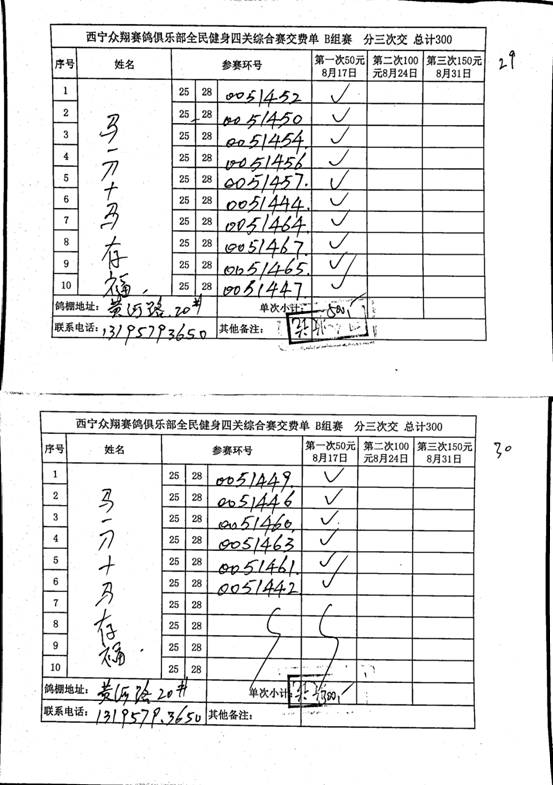 西宁众翔赛鸽俱乐部全民健身四关综合赛交费单 B组赛 分三次交 总计300
29
序号 姓名 参赛环号 第一次50元 8月17日 第二次100元8月24日 第三次150元 8月31日
1 25 28 0051452 ✓
2 25 28 0051450 ✓
3 25 28 0051454 ✓
4 25 28 0051456 ✓
5 25 28 0051457 ✓
6 25 28 0051444 ✓
7 25 28 0051464 ✓
8 25 28 0051467 ✓
9 25 28 0051465 ✓
10 25 28 0051447 ✓
马一刀十马存福
鸽棚地址: 黄河路20# 单次小计: 500
联系电话: 13195793650 其他备注:
西宁众翔赛鸽俱乐部全民健身四关综合赛交费单 B组赛 分三次交 总计300
30
序号 姓名 参赛环号 第一次50元 8月17日 第二次100元8月24日 第三次150元 8月31日
1 25 28 0051449 ✓
2 25 28 0051446 ✓
3 25 28 0051460 ✓
4 25 28 0051463 ✓
5 25 28 0051461 ✓
6 25 28 0051442 ✓
7 25 28
8 25 28
9 25 28
10 25 28
马一刀十马存福
鸽棚地址: 黄河路20# 单次小计: 300
联系电话: 13195793650 其他备注: